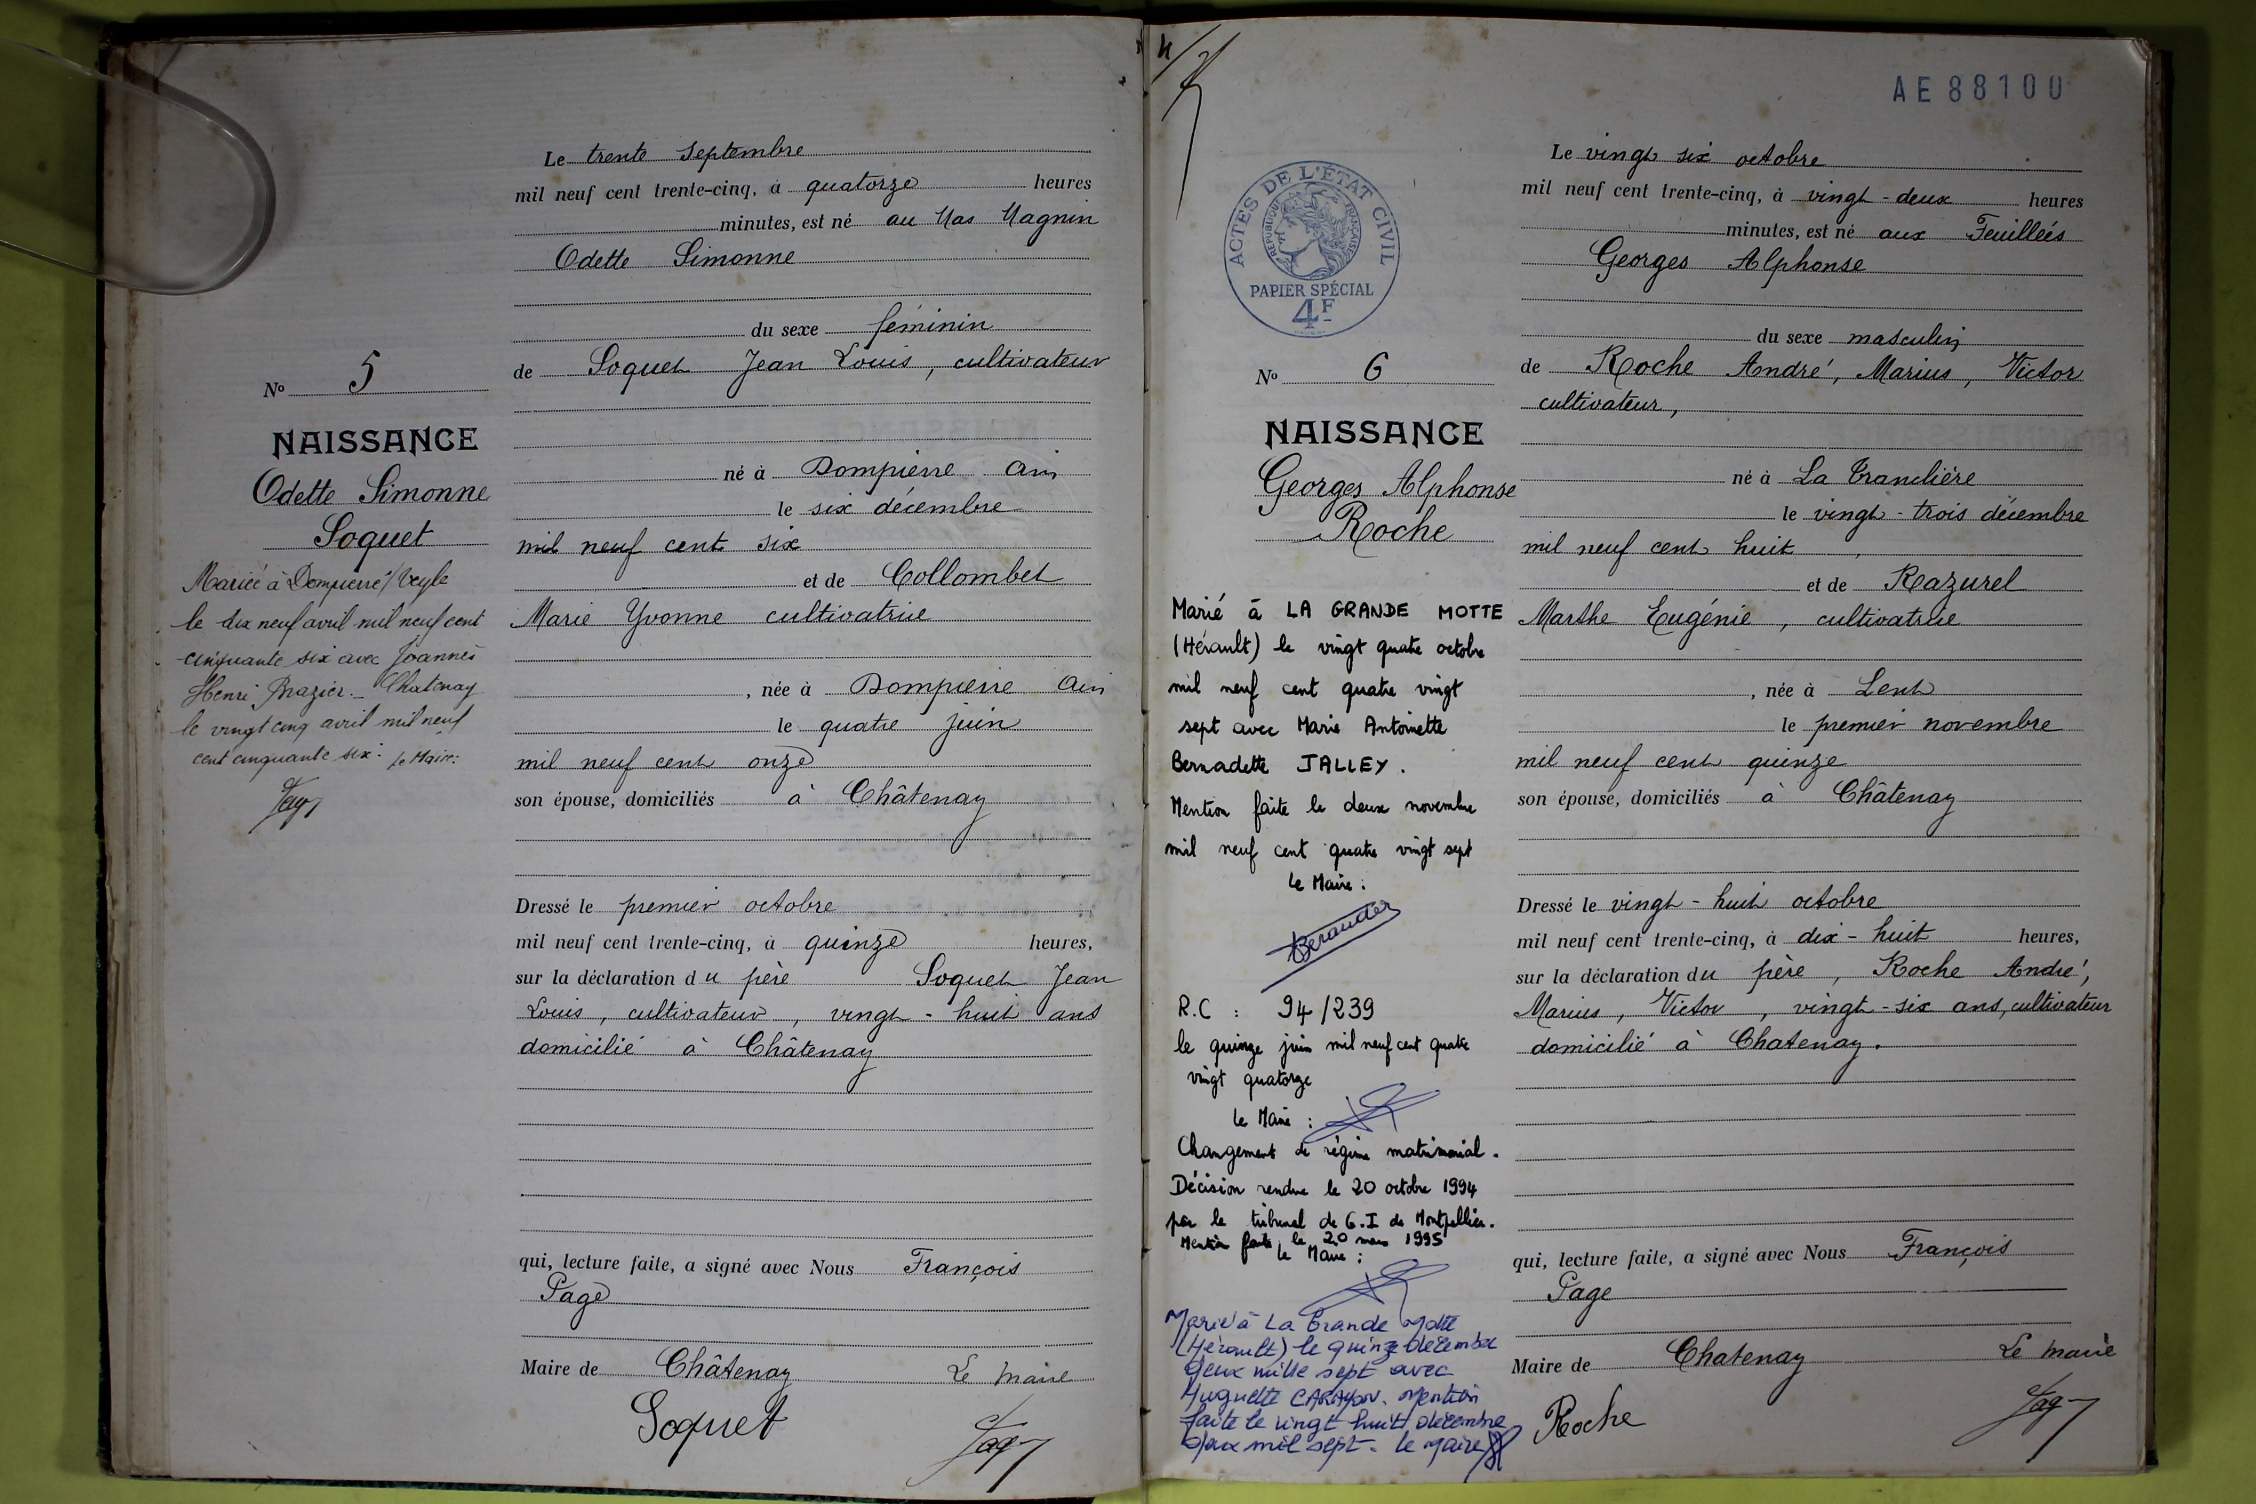 Le trente septembre
mil neuf cent trente-cinq, à quatorze heures
minutes, est né au Mas Magnin
Odette Simonne
du sexe féminin
de Soquet Jean Louis, cultivateur
No 5
NAISSANCE
Odette Simonne
Soquet
né à Dompierre Ain
le six décembre
mil neuf cent six
et de Collombet
Marie Yvonne cultivatrice
, née à Dompierre Ain
le quatre juin
mil neuf cent onze
son épouse, domiciliés à Châtenay
Mariée à Dompierre s/ Veyle
le dix neuf avril mil neuf cent
cinquante six avec Joannès
Henri Brazier. _ Chatenay
le vingt cinq avril mil neuf
cent cinquante six. Le Maire:
Dressé le premier octobre
mil neuf cent trente-cinq, à quinze heures,
sur la déclaration du père Soquet Jean
Louis, cultivateur, vingt-huit ans
domicilié à Châtenay
qui, lecture faite, a signé avec Nous François
Page
Maire de Châtenay Le maire
Soquet
Page
AE 88100
ACTES DE L'ÉTAT CIVIL
RÉPUBLIQUE FRANÇAISE
PAPIER SPÉCIAL
4F
Le vingt six octobre
mil neuf cent trente-cinq, à vingt-deux heures
minutes, est né aux Feuillées
Georges Alphonse
du sexe masculin
de Roche André, Marius, Victor
cultivateur,
No 6
NAISSANCE
Georges Alphonse
Roche
né à La Tranclière
le vingt-trois décembre
mil neuf cent huit,
et de Razurel
Marthe Eugénie, cultivatrice
, née à Lent
le premier novembre
mil neuf cent quinze
son épouse, domiciliés à Châtenay
Marié à LA GRANDE MOTTE
(Hérault) le vingt quatre octobre
mil neuf cent quatre vingt
sept avec Marie Antoinette
Bernadette JALLEY.
Mention faite le deux novembre
mil neuf cent quatre vingt sept
le Maire :
R.C : 94/239
le quinze juin mil neuf cent quatre
vingt quatorze
le Maire :
Changement de régime matrimonial.
Décision rendue le 20 octobre 1994
par le tribunal de G.I de Montpellier.
Mention faite le 20 mars 1995
le Maire :
Marié à La Grande Motte
(Hérault) le quinze décembre
deux mille sept avec
Huguette CARAYON. Mention
faite le vingt huit décembre
deux mil sept. le Maire
Dressé le vingt-huit octobre
mil neuf cent trente-cinq, à dix-huit heures,
sur la déclaration du père, Roche André,
Marius, Victor, vingt-six ans, cultivateur
domicilié à Chatenay.
qui, lecture faite, a signé avec Nous François
Page
Maire de Chatenay Le maire
Roche
Page